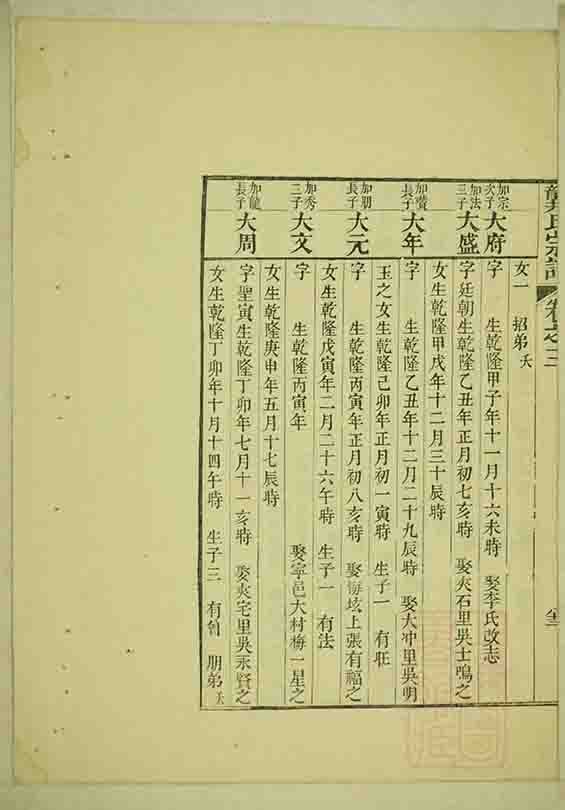 龔氏宗譜 卷之三
女一 招弟夭
加宗次子 大府 字 生乾隆甲子年十一月十六未時 娶李氏改志
加法三子 大盛 字廷朝生乾隆乙丑年正月初七亥時 娶夾石里吳士鳴之
女生乾隆甲戌年十二月三十辰時
加贊長子 大年 字 生乾隆乙丑年十二月二十九辰時 娶大冲里吳明
玉之女生乾隆己卯年正月初一寅時 生子一 有旺
加朋長子 大元 字 生乾隆丙寅年正月初八亥時 娶海坹上張有福之
女生乾隆戊寅年二月二十六午時 生子一 有法
加秀三子 大文 字 生乾隆丙寅年 娶寧邑大村梅一星之
女生乾隆庚申年五月十七辰時
加龍長子 大周 字聖寅生乾隆丁卯年七月十一亥時 娶夾宅里吳永賢之
女生乾隆丁卯年十月十四午時 生子三 有曾 朋弟夭